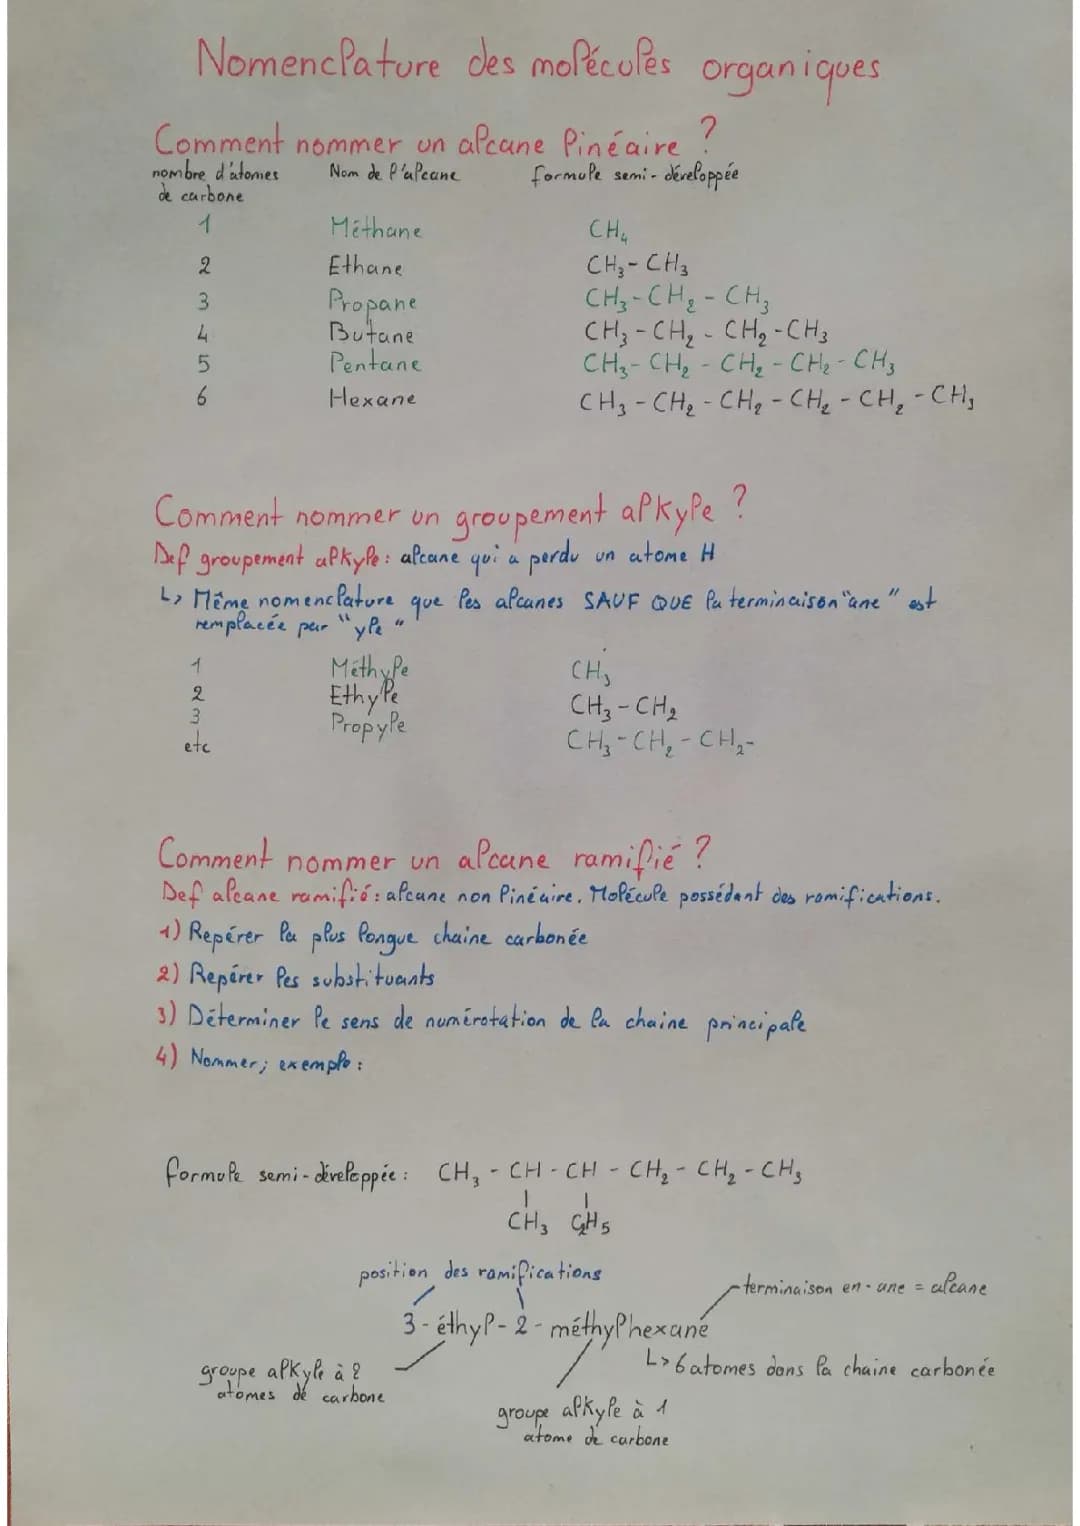 Nomenclature des molécules organiques
Comment nommer un alcane linéaire ?
nombre d'atomes de carbone Nom de l'alcane formule semi-développée
1 Méthane CH₄
2 Ethane CH₃-CH₃
3 Propane CH₃-CH₂-CH₃
4 Butane CH₃-CH₂-CH₂-CH₃
5 Pentane CH₃-CH₂-CH₂-CH₂-CH₃
6 Hexane CH₃-CH₂-CH₂-CH₂-CH₂-CH₃
Comment nommer un groupement alkyle ?
Def groupement alkyle : alcane qui a perdu un atome H
↳ Même nomenclature que les alcanes SAUF QUE la terminaison "ane" est
remplacée par "yle"
1 Méthyle CH₃
2 Ethyle CH₃-CH₂
3 Propyle CH₃-CH₂-CH₂-
etc
Comment nommer un alcane ramifié ?
Def alcane ramifié : alcane non linéaire. Molécule possédant des ramifications.
1) Repérer la plus longue chaine carbonée
2) Repérer les substituants
3) Déterminer le sens de numérotation de la chaine principale
4) Nommer; exemple :
formule semi-développée : CH₃-CH-CH-CH₂-CH₂-CH₃
CH₃ C₂H₅
position des ramifications
terminaison en -ane = alcane
3-éthyl-2-méthylhexane
↳ 6 atomes dans la chaine carbonée
groupe alkyle à 2
atomes de carbone
groupe alkyle à 1
atome de carbone